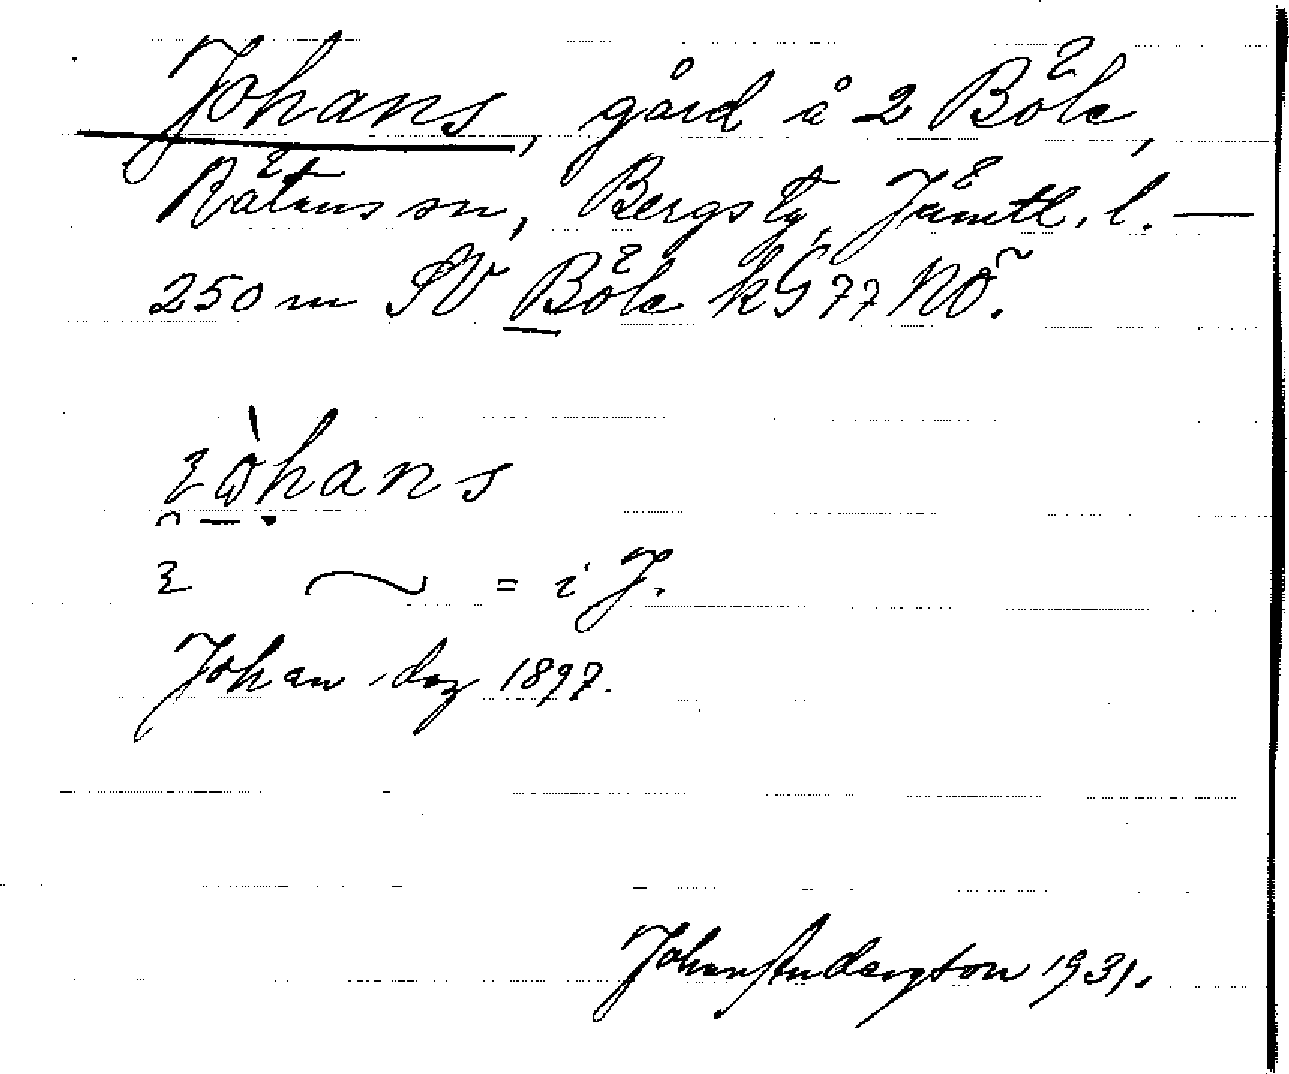 Johans, gård å 2 Böle,
Rätans sn, Bergs tg, Jämtl. l. —
250 m SV Böle kG 77 NO.
= i J.
Johan dog 1897.
Johan Anderzson 1931.